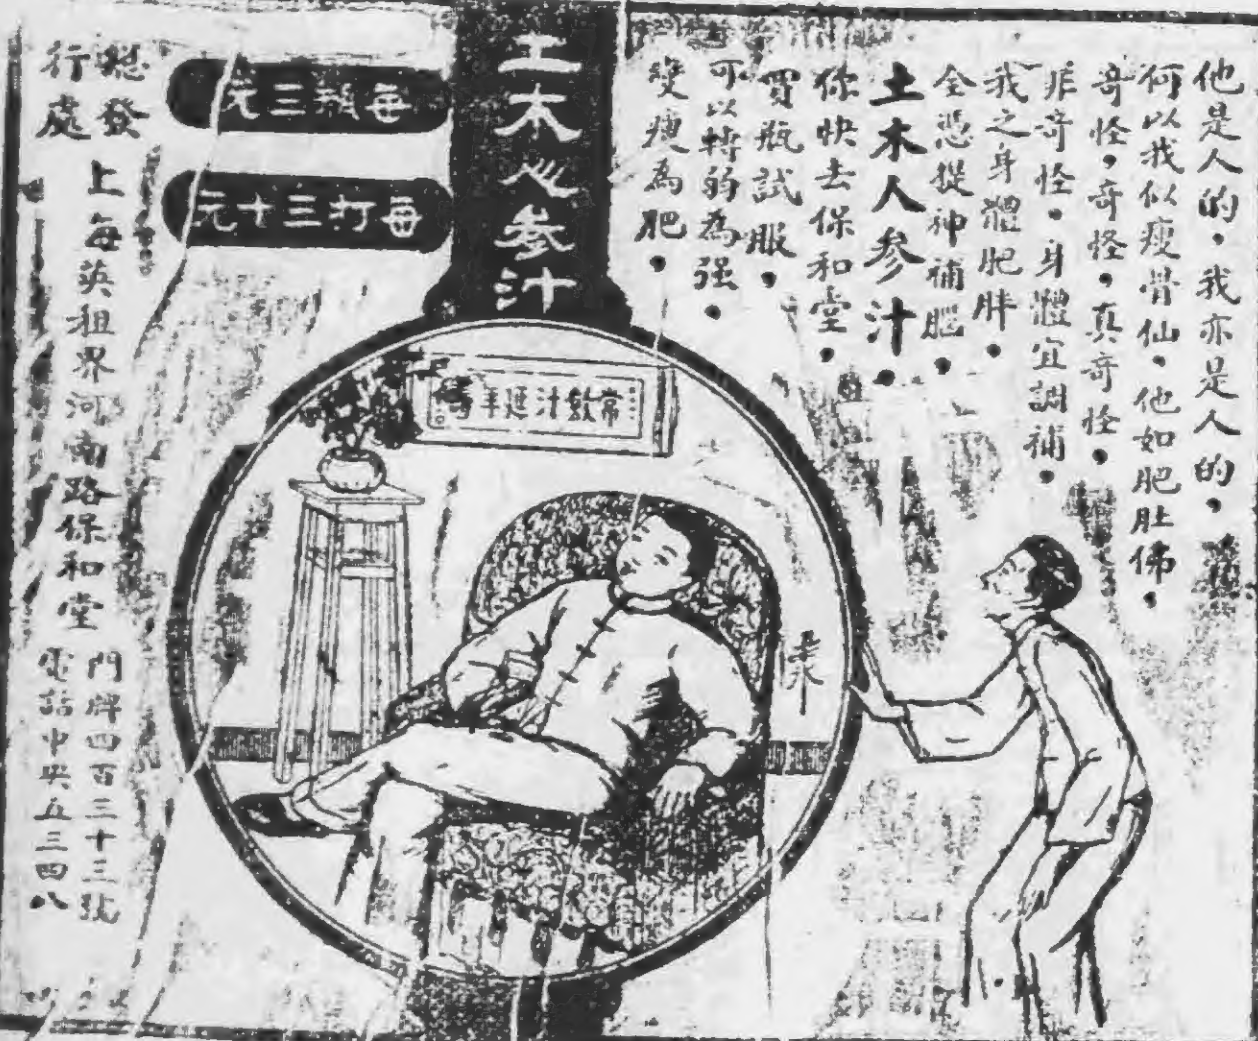 他是人的，我亦是人的，
何以我似瘦骨仙，他如肥肚佛，
奇怪，奇怪，真奇怪，
非奇怪，身體宜調補，
我之身體肥胖，
全憑從神補腦，
土木人參汁，
你快去保和堂，
買瓶試服，
可以轉弱為强，
變瘦為肥，
土木人參汁
每瓶三元
每打三十元
常飲汁延年
總發行處
上海英租界河南路保和堂
門牌四百三十三號
電話中央五三四八